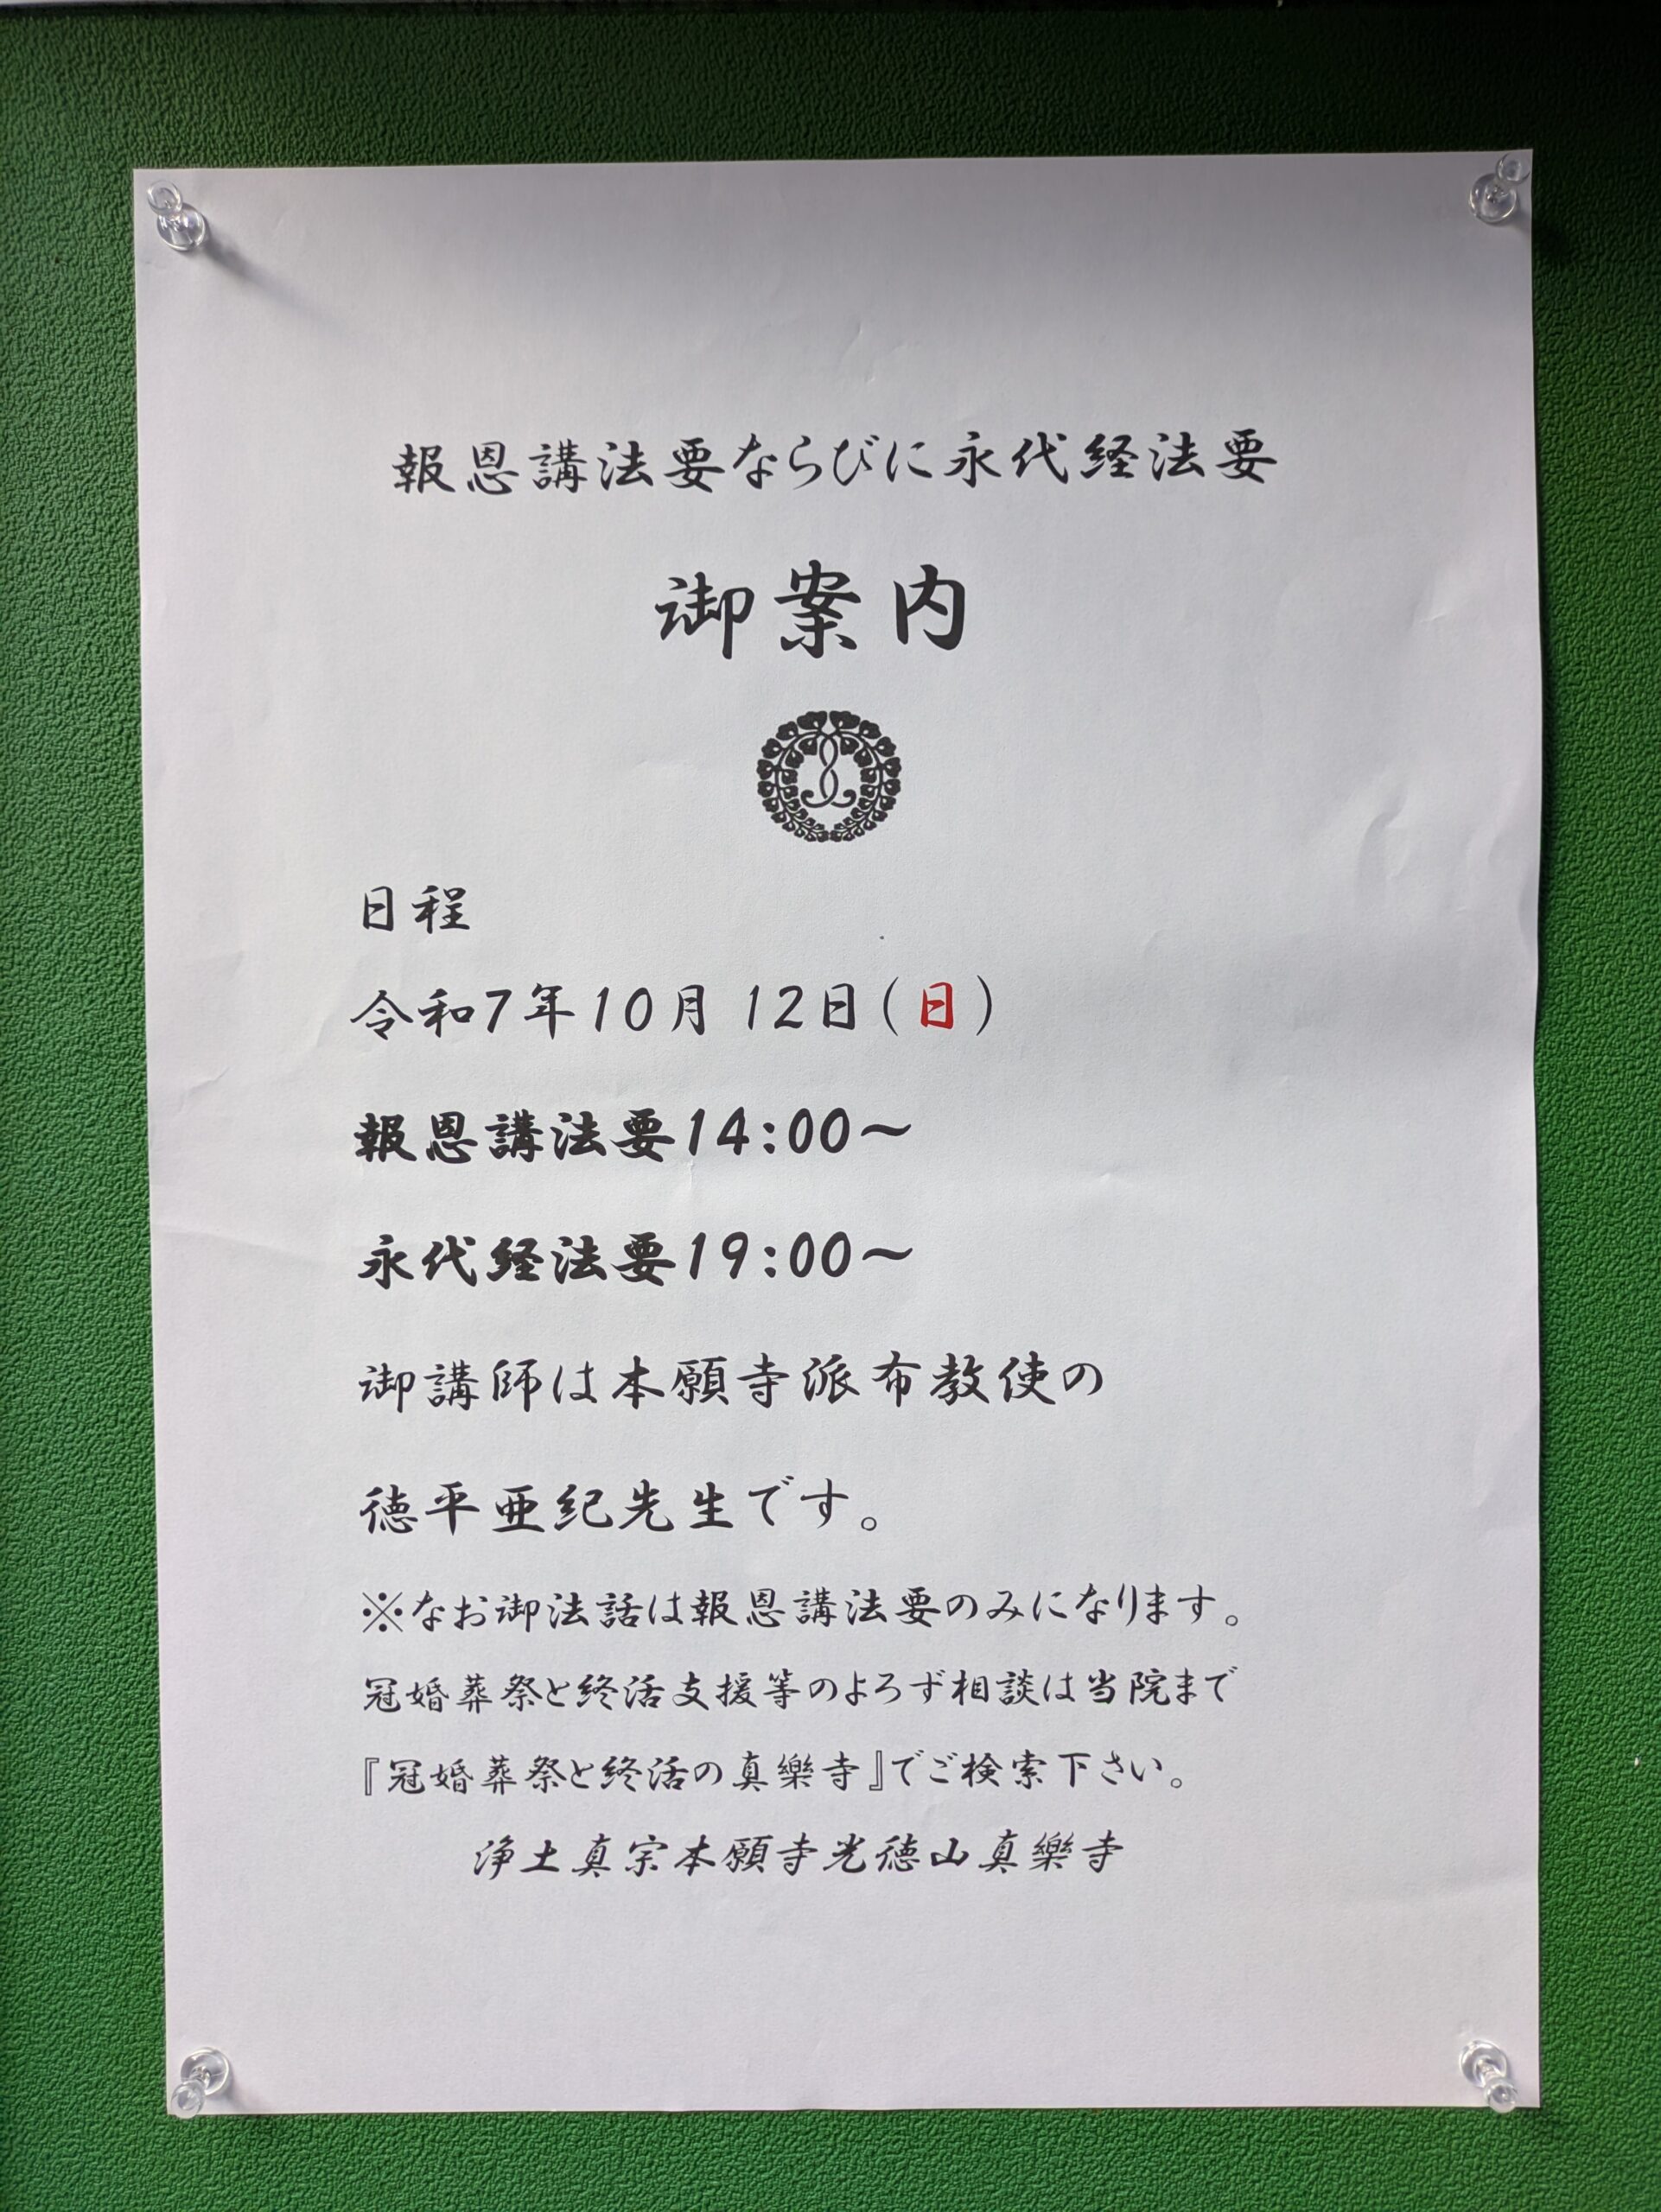 報恩講法要ならびに永代経法要
御案内
日程
令和7年10月12日(日)
報恩講法要14:00～
永代経法要19:00～
御講師は本願寺派布教使の
徳平亜紀先生です。
※なお御法話は報恩講法要のみになります。
冠婚葬祭と終活支援等のよろず相談は当院まで
『冠婚葬祭と終活の真樂寺』でご検索下さい。
浄土真宗本願寺光徳山真樂寺